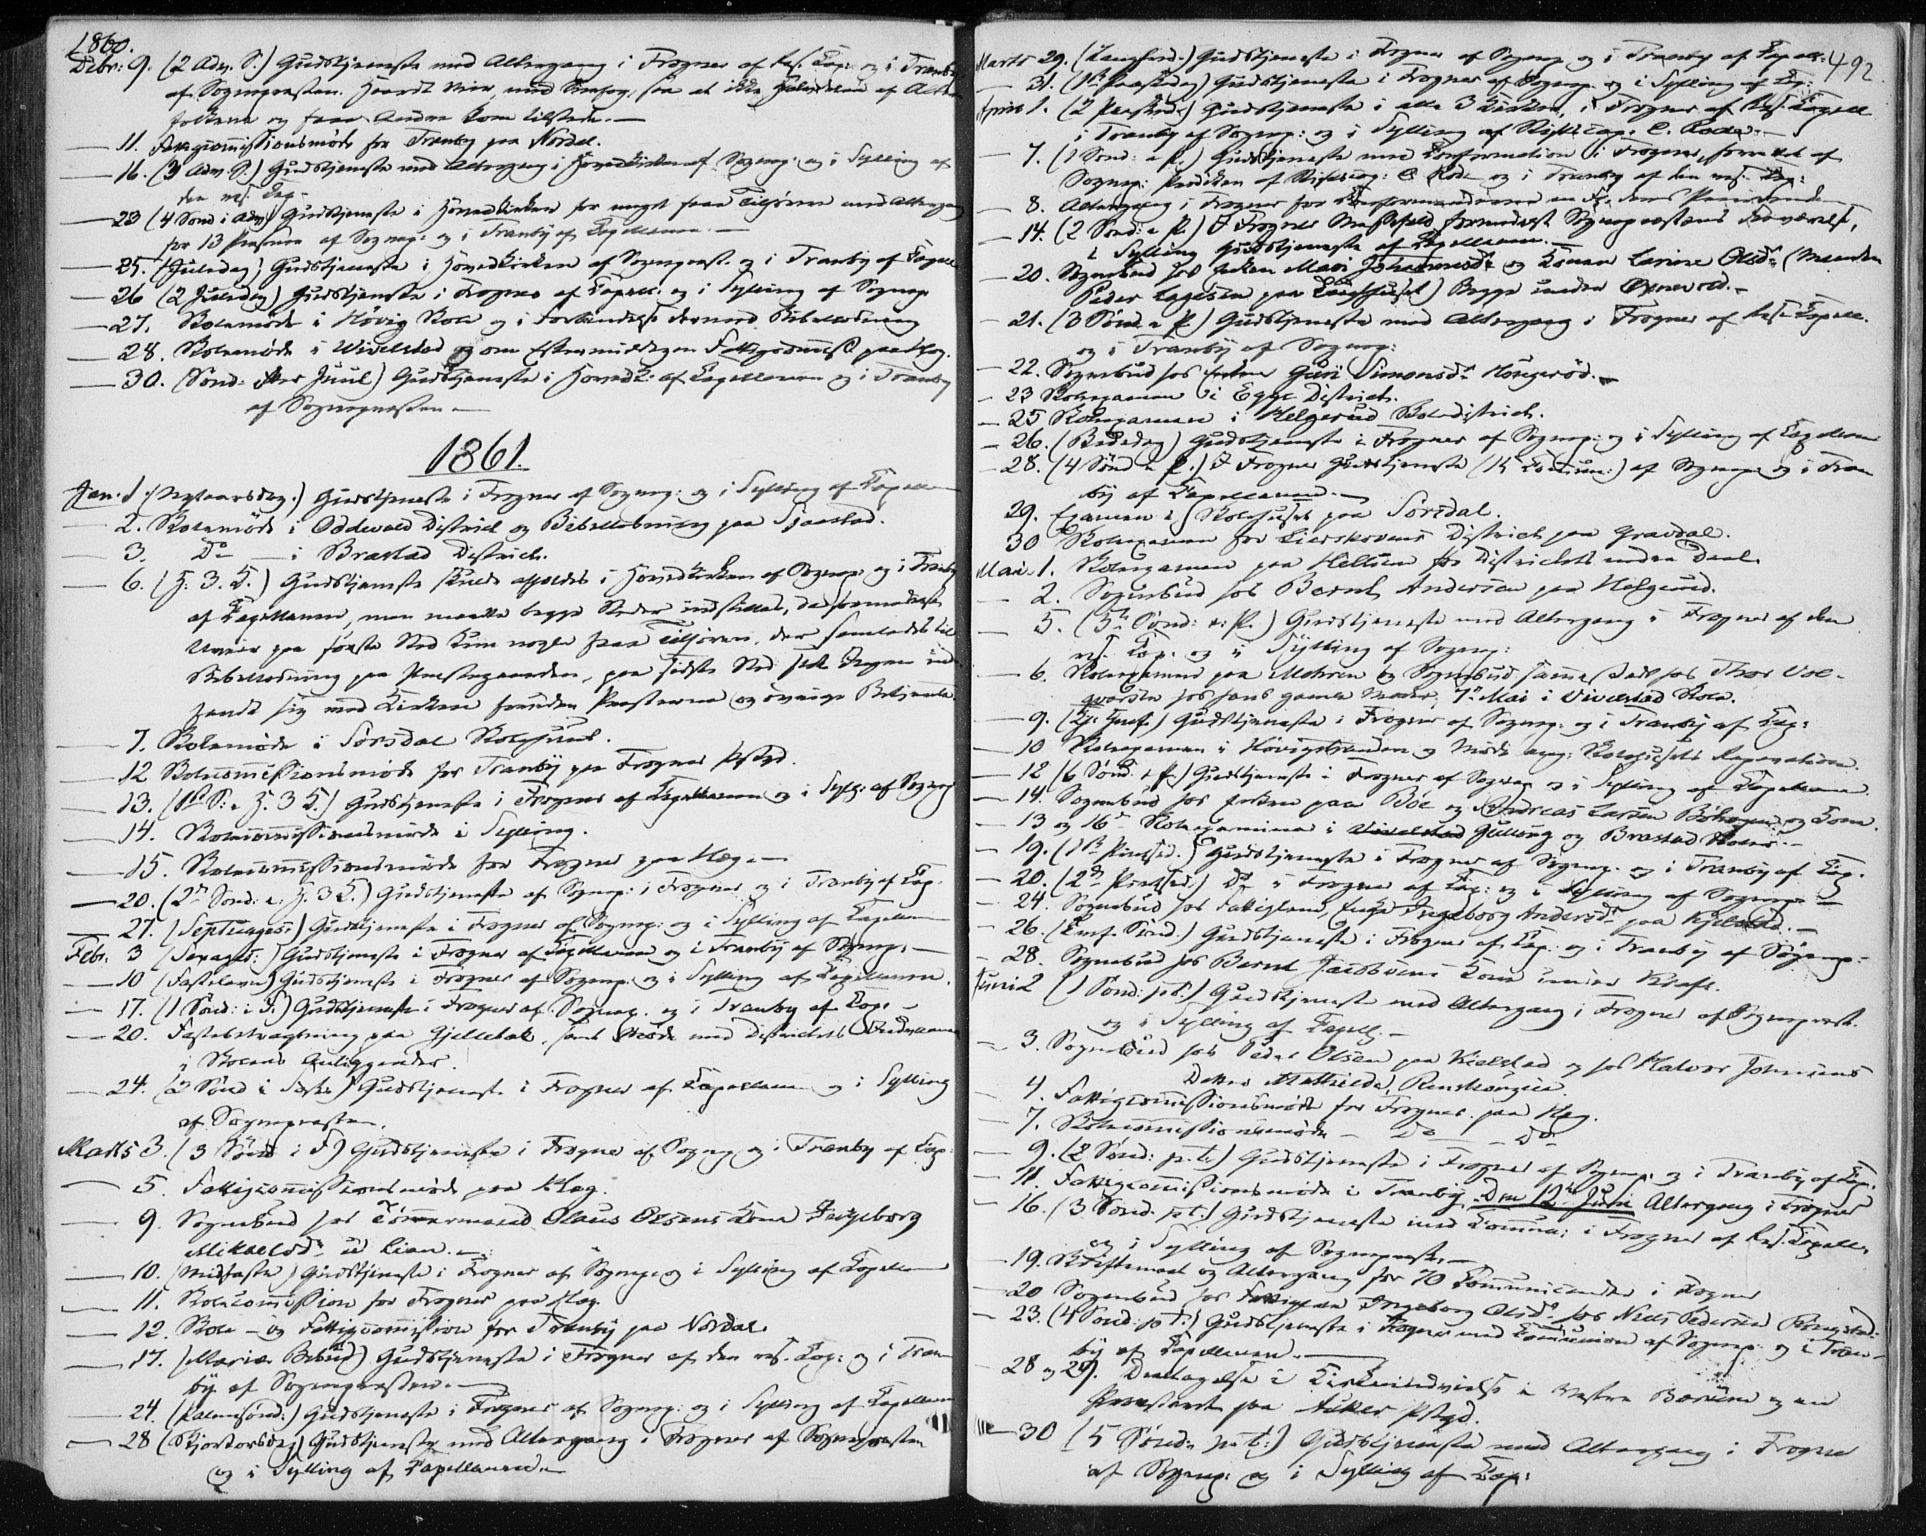 1860.
Debr: 9. (2 Adv. S.) Gudstjeneste med Altergang i Frogner af Res. Cap. og i Tranby
af Sognepræsten. Haardt Veir med Snefog, saa at ikke Halvdelen af Alter
folkene og faa Andre kom tilstede. —
— 11. Fattigcommissionsmøde for Tranby paa Nordal.
— 16. (3 Adv. S.) Gudstjeneste med Altergang i Hovedkirken af Sognep: og i Sylling af
den res. Cap.
— 23 (4 Sønd i Adv) Gudstjeneste i Hovedkirken for meget faae Tilhørere med Altergang
for 13 Personer af Sognep: og i Tranby af Capellanen. —
— 25. (Juledag) Gudstjeneste i Hovedkirken af Sognepræst. og i Tranby af Capell
— 26 (2 Juledag) Gudstjeneste i Frogner af Capell: og i Sylling af Sognep.
— 27. Skolemøde i Høvig Skole og i Forbindelse dermed Bibellæsning
— 28. Skolemøde i Wivelstad og om Eftermiddagen Fattigcommiss paa Heg.
— 30. (Sønd: efter Juul) Gudstjeneste i Hovedk: af Capellanen og i Tranby
af Sognepræsten —
1861.
Jan. 1. (Nytaarsdag.) Gudstjeneste i Frogner af Sognep: og i Sylling af Capellan
— 2. Skolemøde i Oddevald District og Bibellæsning paa Sjaastad.
— 3. Do — i Brastad District.
— 6. (H. 3. K.) Gudstjeneste skulde afholdes i Hovedkirken af Sognep. og i Tranby
af Capellanen, men maatte begge Steder indstilles, da formedelst
Veiret paa første Sted kun nogle faae Tilhørere, der samledes til
Bibellæsning paa Præstegaarden, paa sidste Sted slet Ingen ind
fandt sig ved Kirken foruden Præsterne og øvrige Betjente
— 7. Skolemøde i Sørsdal Skolehuus.
— 12 Skolecommissionsmøde for Tranby paa Frogner Pstgd.
— 13. (1ste S. e. H. 3 K.) Gudstjeneste i Frogner af Capellanen og i Syll: af Sognep
— 14. Skolecommissionsmøde i Sylling.
— 15. Skolecommissionsmøde for Frogner paa Heg. —
— 20. (2den Sønd: e. H. 3 K.) Gudstjeneste af Sognep: i Frogner og i Tranby af Cap.
— 27. (Septuages:) Gudstjeneste i Frogner af Sognep: og i Sylling af Capellan
Febr: 3 (Sexages:) Gudstjeneste i Frogner af Capellanen og i Tranby af Sognep. —
— 10 (Fastelavn) Gudstjeneste i Frogner af Sognep: og i Sylling af Capellanen.
— 17. (1 Sønd: i F.) Gudstjeneste i Frogner af Sognep. og i Tranby af Cap. —
— 20. Fastebetragtning paa Gjellebek, samt Møde med Districtets
i Skolens Anliggender.
— 24. (2 Sønd i Faste) Gudstjeneste i Frogner af Capellanen og i Sylling
af Sognepræsten.
Marts 3. (3 Sønd i F) Gudstjeneste i Frogner af Sognep og i Tranby af Cap:
— 5. Fattigcommissionsmøde paa Heg.
— 9. Sognebud hos Tømmermand Olaus Olsens Kone Ingeborg
Mikkelsdr. u Lian. —
— 10. (Midfaste) Gudstjeneste i Frogner af Sognep: og i Sylling af Capellan
— 11. Skolecommission for Frogner paa Heg.
— 12. Skole- og Fattigcommission for Tranby paa Nordal
— 17. (Mariæ Bebud) Gudstjeneste i Frogner af den res. Cap: og i Tran
by af Sognepræsten. —
— 24. (Palmesønd:) Gudstjeneste i Frogner af Sognep: og i Sylling af Capellan
— 28 (Skjærtorsdag) Gudstjeneste med Altergang i Frogner af Sognepræsten
og i Sylling af Capellanen. —
492.
Marts 29. (Langfred.) Gudstjeneste i Frogner af Sognep. og i Tranby af Capell:
— 31. (1ste Paaskedag) Gudstjeneste i Frogner af Sognep. og i Sylling af Cap.
April 1. (2 Paaskedag) Gudstjeneste i alle 3 Kirker, i Frogner af Res. Capell
i Tranby af Sognep: og i Sylling af Stiftscap. C. Rode. —
— 7. (1 Sønd: e P.) Gudstjeneste med Confirmation i Frogner, forrettet af
Sognep: Prædiken af Stiftscap: C Rode og i Tranby af den res. Cap:
— 8. Altergang i Frogner for Confirmanderne
— 14. (2 Sønd: e P.) I Frogner Messefald formedelst Sognepræstens Fraværelse,
i Sylling Gudstjeneste af Capellanen. —
— 20. Sognebud hos Enken Mari Johannesdr. og Konen Lavine Olsdr (Manden
Peder paa ) Begge under Opnevold. —
— 21. (3 Sønd. e P.) Gudstjeneste med Altergang i Frogner af Res. Capell.
og i Tranby af Sognep:
— 22. Sognebud hos Guri Simonsdr. Hougerød. —
— 23 Skoleexamen i Egge District.
— 25 Skoleexamen i Helgerud Skoledistrict.
— 26. (Bededag) Gudstjeneste i Frogner af Sognep: og i Sylling af Capellan
— 28. (4 Sønd e P.) I Frogner Gudstjeneste (15 Commun:) af Sognep. og i Tran
by af Capellanen. —
29. Examen i Skolehuset paa Sørsdal.
30 Skoleexamen for Lierskovens District paa Gravdal.
Mai 1. Skoleexamen paa Heltien for Districtets nedre Deel.
— 2. Sognebud hos Bernt Andersen paa Helgerud.
— 5. (5te Sønd: e: P.) Gudstjeneste med Altergang i Frogner af den
res. Cap. og i Sylling af Sognep:
— 6. Skoleexamen paa Mohren og Sognebud samme Sted hos Thor Vol-
hos hans gamle Moder, 7de Mai i Vivelstad Skole.
— 9. (Chr. Himf.) Gudstjeneste i Frogner af Sognep. og i Tranby af Cap:
— 10 Skoleexamen i Høvigstranden og Møde ang: Skolehusets Reparation.
— 12 (6 Sønd. e P.) Gudstjeneste i Frogner af Sognep og i Sylling af Capellanen
— 14. Sognebud hos Enken paa Bøe og Andreas Larsen Bøhagen og Kone.
— 13 og 16de Skoleexamina i Gullaug og Brastad Skoler. —
— 19. (1ste Pintsed.) Gudstjeneste i Frogner af Sognep. og i Tranby af Cap.
— 20. (2den Pintsed.) Do i Frogner af Cap: og i Sylling af Sognep. —
— 24. Sognebud hos Fattiglem, Enke Ingeborg Andersdr. paa Kjelstad. —
— 26. (Trinf. Sønd.) Gudstjeneste i Frogner af Cap: og i Tranby af Sognep. —
— 28. Sognebud hos Bernt Jacobsens Kone under Kraft.
Juni 2 (1 Sønd: p.t.) Gudstjeneste med Altergang i Frogner af Sognepræst.
og i Sylling af Capell. —
— 3. Sognebud hos Peder Olsen paa Kielstad og hos Halvor Johnsens
Datter Mathilde,
— 4. Fattigcommissionsmøde for Frogner paa Heg.
— 7. Skolecommissionsmøde — Do — Do
— 9. (2 Sønd: p.t.) Gudstjeneste i Frogner af Sognep. og i Tranby af Cap.
— 11. Fattigcommissionsmøde i Tranby. Den 12te Juni Altergang i Frogner
— 16. (3 Sønd. p.t.) Gudstjeneste med Commun: i Frogner af Res. Capell,
og i Sylling af Sognepræsten. —
— 19. Skriftemaal og Altergang for 70 Communicanter i Frogner
— 20 Sognebud hos Fattiglem Ingeborg Olsdr. hos Niels Pedersen
— 23. (4 Sønd: p.t.) Gudstjeneste i Frogner med Communion af Sognep: og i Tran-
by af Capellanen. —
— 28 og 29. Deeltagelse i Kirkeindvielse i Vestre Bærum og en
paa Asker Pstgd.
— 30 (5 Sønd: p.t:) Gudstjeneste med Altergang i Frogner
af Sognep: og i Sylling af Cap: